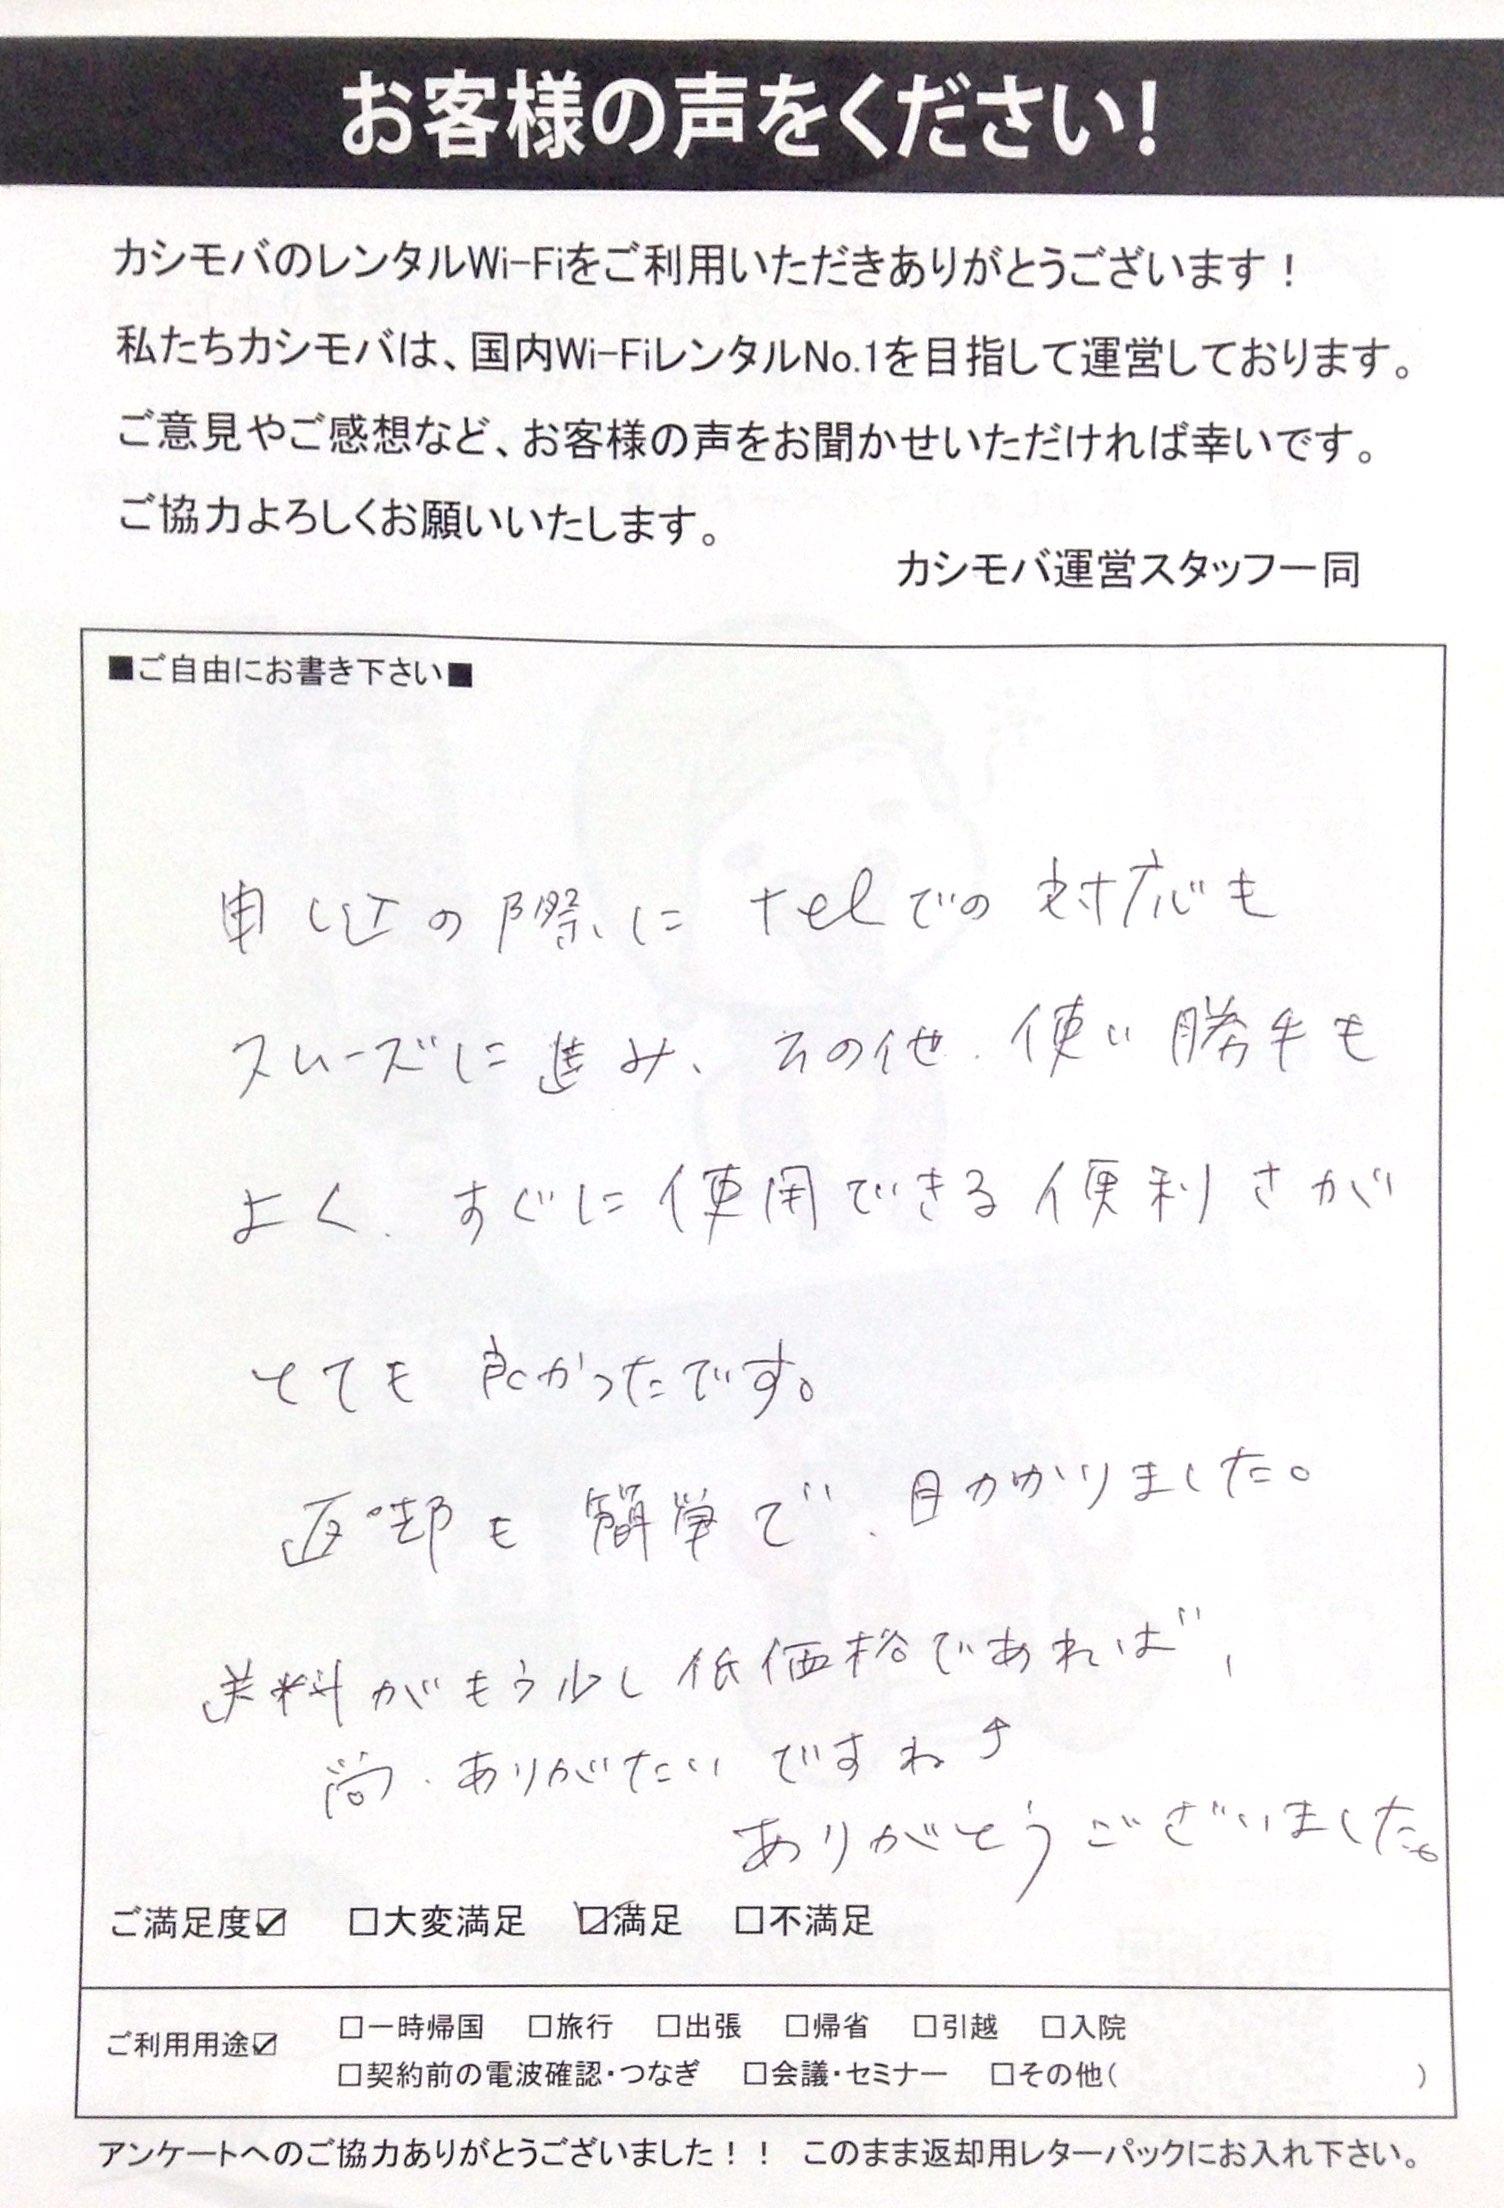 お客様の声をください!
カシモバのレンタルWi-Fiをご利用いただきありがとうございます！
私たちカシモバは、国内Wi-FiレンタルNo.1を目指して運営しております。
ご意見やご感想など、お客様の声をお聞かせいただければ幸いです。
ご協力よろしくお願いいたします。
カシモバ運営スタッフ一同
■ご自由にお書き下さい■
申し込の際に telでの対応も
スムーズに進み、その他、使い勝手も
よく、すぐに使用できる便利さが
とても良かったです。
返却も簡単で、助かりました。
送料がもう少し低価格であれば、
尚、ありがたいですね↑
ありがとうございました。
ご満足度☑ □大変満足 ☑満足 □不満足
ご利用用途☑ □一時帰国 □旅行 □出張 □帰省 □引越 □入院
□契約前の電波確認・つなぎ □会議・セミナー □その他( )
アンケートへのご協力ありがとうございました！！ このまま返却用レターパックにお入れ下さい。